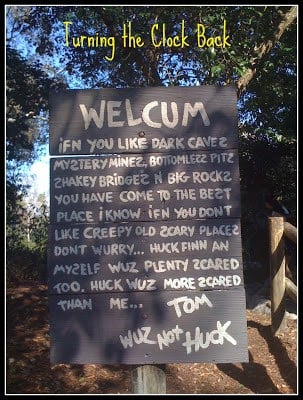 Turning the Clock Back
WELCUM
IFN YOU LIKE DARK CAVES
MYSTERY MINES, BOTTOMLESS PITS
SHAKEY BRIDGES N BIG ROCKS
YOU HAVE COME TO THE BEST
PLACE I KNOW IFN YOU DON'T
LIKE CREEPY OLD SCARY PLACES
DONT WURRY... HUCK FINN AN
MYSELF WUZ PLENTY SCARED
TOO. HUCK WUZ MORE SCARED
THAN ME... TOM
WUZ NOT HUCK